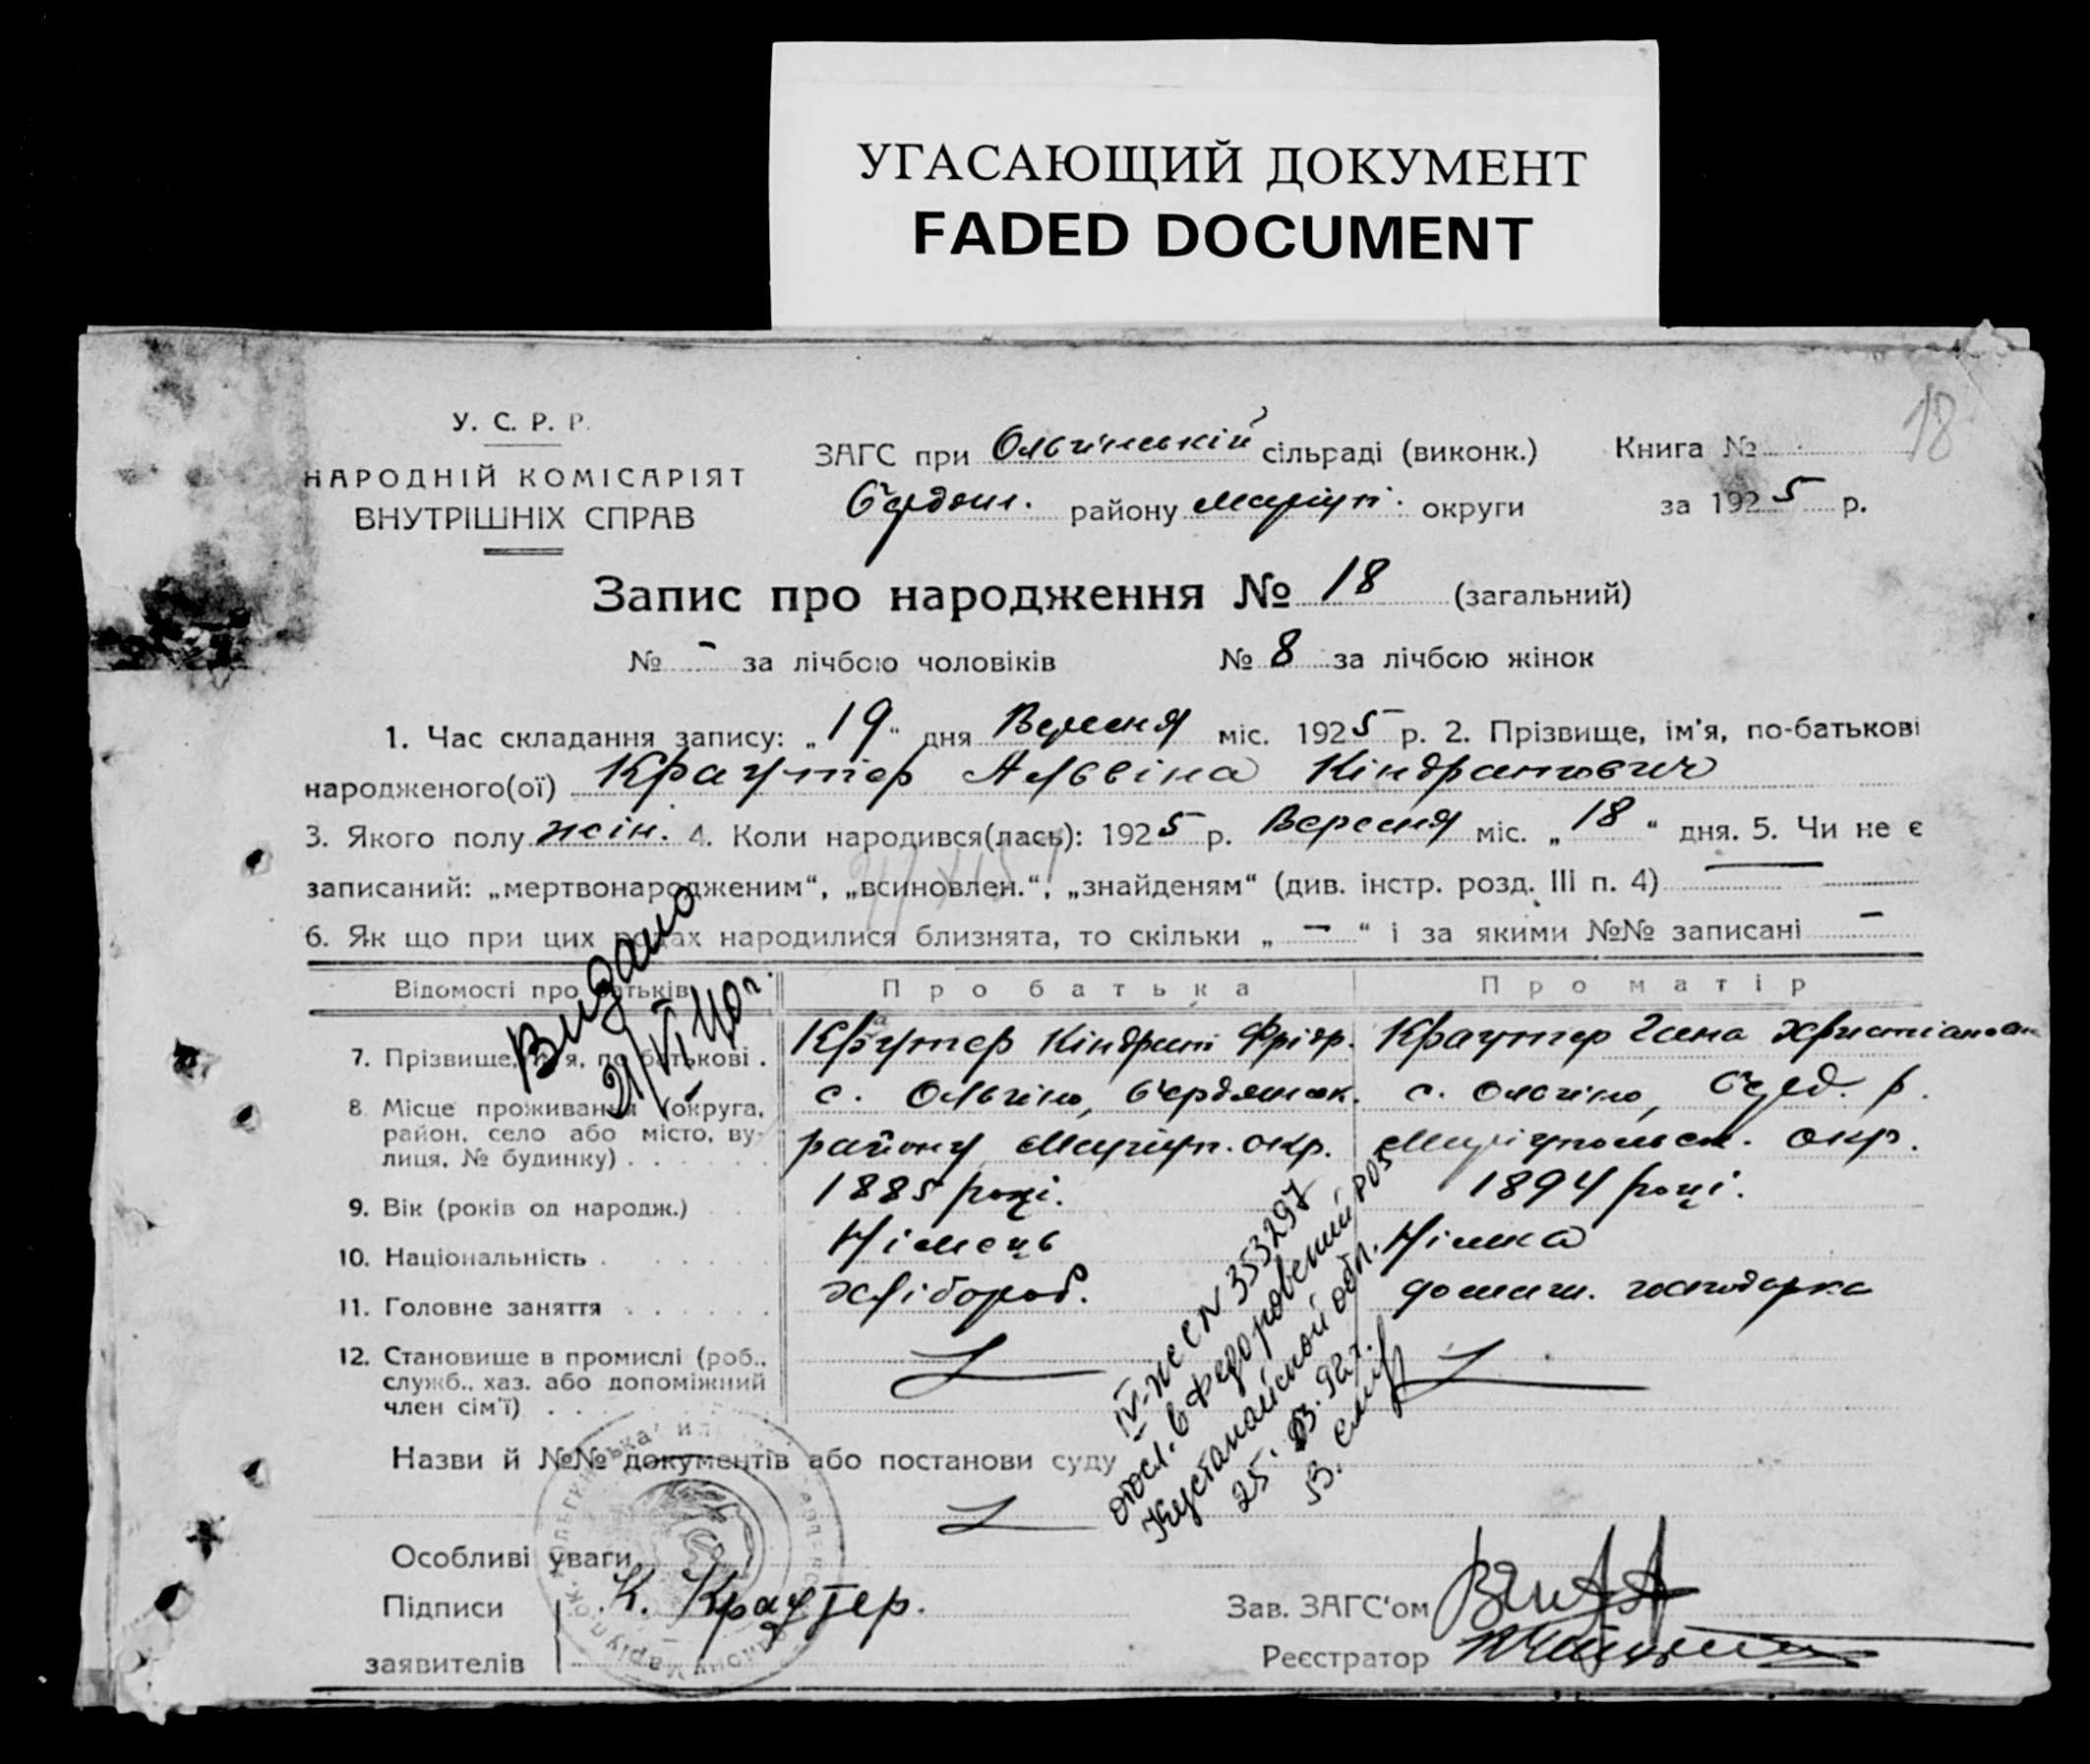 УГАСАЮЩИЙ ДОКУМЕНТ
FADED DOCUMENT
18
У. С. Р. Р.
НАРОДНІЙ КОМІСАРІЯТ
ВНУТРІШНІХ СПРАВ
ЗАГС при Ольгінській сільраді (виконк.)
Бердян. району Маріуп. округи
Книга №
за 1925 р.
Запис про народження № 18 (загальний)
№ - за лічбою чоловіків № 8 за лічбою жінок
1. Час складання запису: „19“ дня Вересня міс. 1925 р. 2. Прізвище, ім'я, по-батькові
народженого(ої) Краутер Альвіна Кіндратович
3. Якого полу жін. 4. Коли народився(лась): 1925 р. Вересня міс. „18“ дня. 5. Чи не є
записаний: „мертвонародженим“, „всиновлен.“, „знайденям“ (див. інстр. розд. III п. 4)
6. Як що при цих родах народилися близнята, то скільки „ — “ і за якими №№ записані —
Видано
21/VI 40 г.
Відомості про батьків Про батька Про матір
7. Прізвище, ім'я, по батькові . Краутер Кіндрат Фрідр. Краутер
8. Місце проживання (округа,
район, село або місто, ву-
лиця, № будинку) . . . . . .
с. Ольгіно, Бердянськ.
району Маріуп. окр.
с. Ольгіно, Берд. р.
Маріупольськ. окр.
9. Вік (років од народж.) 1885 році. 1894 році.
10. Національність . Німець Німка
11. Головне заняття . . . . . Хлібороб. домашн. господарка
12. Становище в промислі (роб.,
служб., хаз. або допоміжний
член сім'ї) . .
IV-ЖС № 353297
отосл. в Федоровский РОЗ
Кустанайской обл.
25. 03. 92 г.
Назви й №№ документів або постанови суду
Особливі уваги
Підписи
заявителів
К. Краутер.
Зав. ЗАГС'ом
Реєстратор